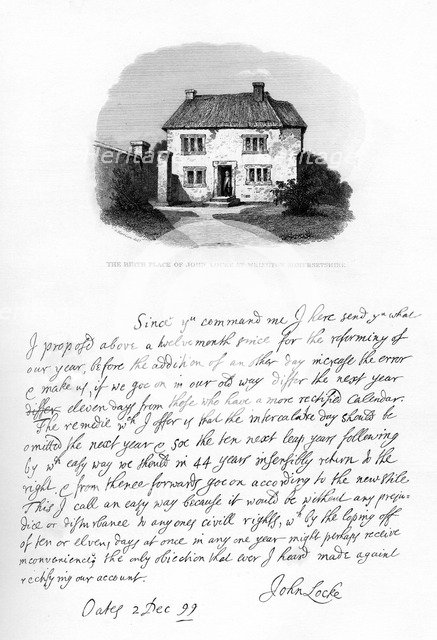 heritage
THE BIRTH PLACE OF JOHN LOCKE AT WRINGTON SOMERSETSHIRE
Since yu command me I here send yu what
I propos'd above a twelvemonth since for the reforming of
our year, before the addition of an other day increase the error
& make us, if we goe on in our old way differ the next year
differ eleven days from those who have a more rectified calendar.
The remedie wch I offer is that the intercalare day should be
omitted the next year & soe the ten next leap years following
by wch easy way we should in 44 years insensibly return to the
right & from thence forwards goe on according to the new stile
This I call an easy way because it would be without any preju-
dice or disturbance to any ones civill rights, wch by the loping off
of ten or eleven days at once in any one year might perhaps receive
inconvenience, the only objection that ever I heard made against
rectifying our account.
John Locke
Oates 2 Dec 99